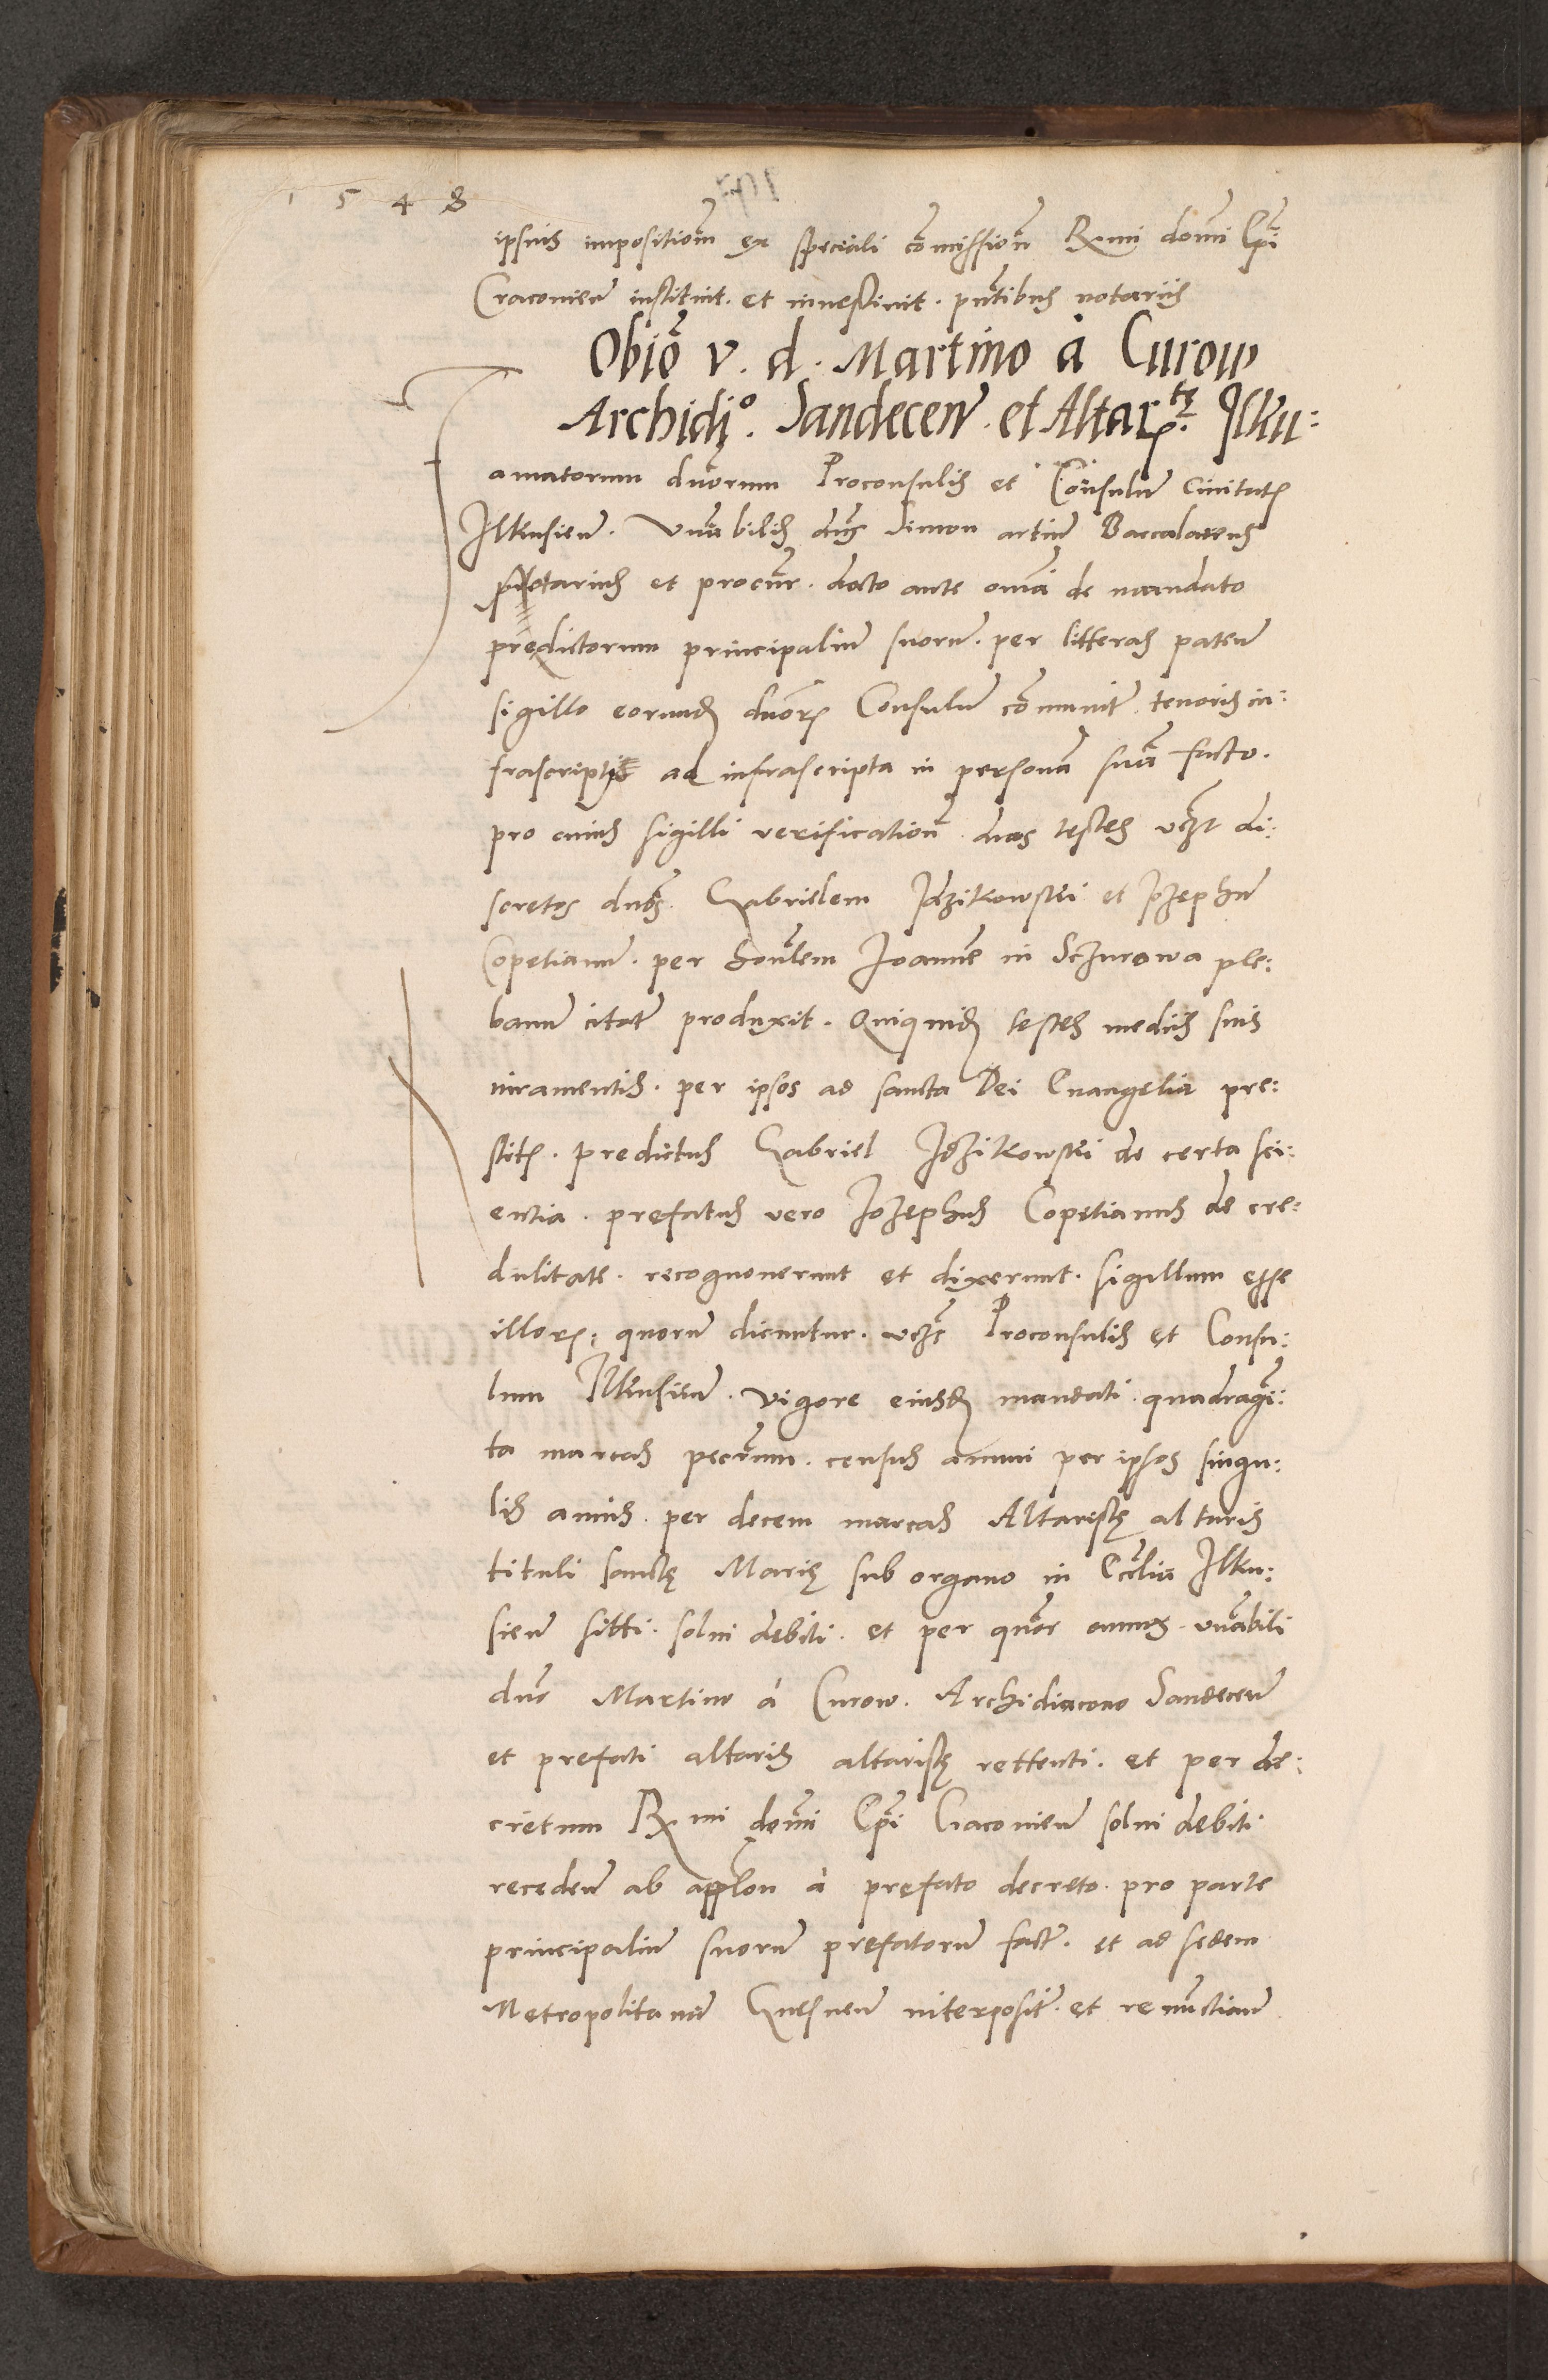 1 5 4 8
ipsius impositionem ex speciali cōmissionē Rmi domī Epī
Cracovien̄ instituit. et investivit. pn̄tibus notariis
Obio v. d. Martino à Curow
Archidi°. Sandecen̄. et Altar. Ilku:
amatorum dnorum Proconsulis et Consulum Civitatis
Ilkusien̄. Vn̄abilis dn̄s Simon artium Baccalareus
notarius et procur. docto ante omnia de mandato
predictorum principaliū suorū. per litteras paten̄
sigillo eorund dnōrum Consulum cōmunit. tenoris in:
frascripti ad infrascripta in personā suā facto.
pro cuius sigilli verificationē duos testes vczt di:
scretos dn̄os. Gabrielem Idzikowski et Jozephū
Copetianū. per honlem Joannē in Sczurowa ple:
banū citat̄ produxit. Quiquid testes mediis suis
iuramentis. per ipsos ad sancta Dei Evangelia pre:
stitis. predictus Gabriel Idzikowski de certa sci:
entia. prefatus vero Jozephus Copetianus de cre:
dulitate. recognoverunt et dixerunt. sigillum esse
illorum: quorū dicuntur. vczt Proconsulis et Consu:
lum Ilkusien̄. Vigore eiusd mandati quadragī:
ta marcas pecun̄. census annui per ipsos singu:
lis annis. per decem marcas Altaristę altaris
tituli sanctę Marię sub organo in Ecclia Ilku:
sien̄ siti. solvi debiti. et per quor annos. vn̄abili
dn̄o Martino à Curow. Archidiacono Sandecen̄
et prefati altaris altaristę rettenti. et per de:
cretum Rmi domī Epī Cracovien̄ solvi debiti
receden̄ ab applōn à prefato decreto. pro parte
principaliū suorū prefatorū fact̄. et ad sedem
Metropolitanā Gnesnen̄ interposit̄. et renunctian̄